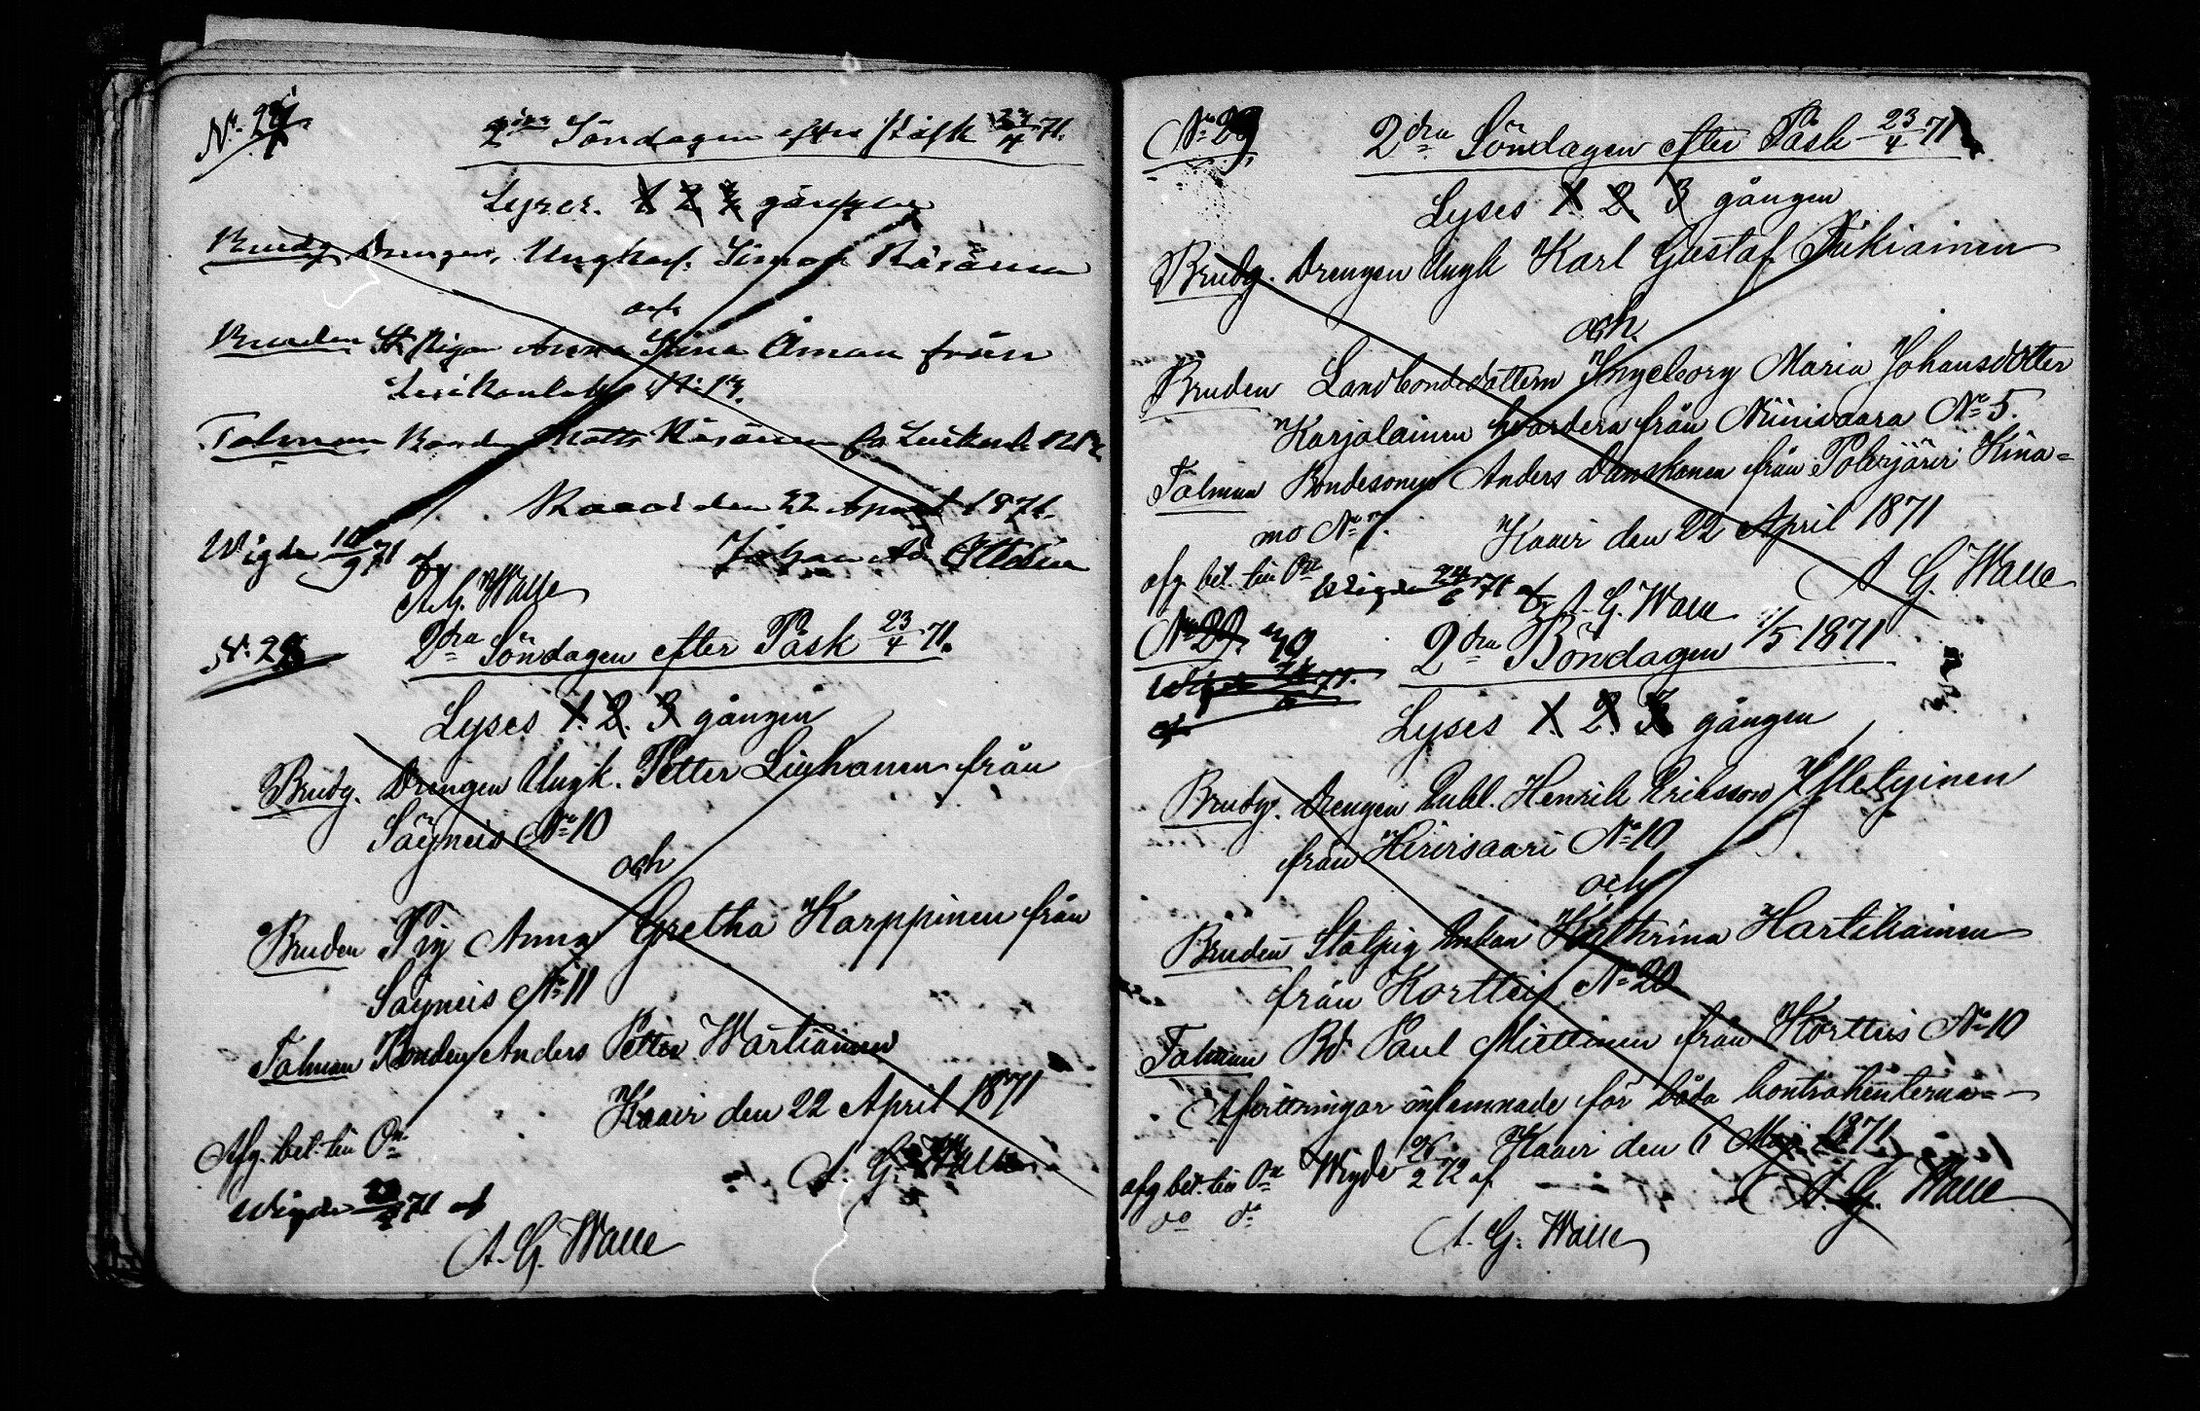 No 27.
2dra Söndagen efter Påsk 23/4 71.
Lyses. 1 2 3 gången
Brudg. Drengen, Ungkarl. Simon Räsänen
och
Bruden St. Pigan Anna Stina Åman från
No 17.
Talman Bonden Matts Räsänen
Kaavi den 22 April 1871.
Johan
Wigde 10/9 71 af
A. G. Walle
No 28
2dra Söndagen efter Påsk 23/4 71.
Lyses 1. 2. 3 gången
Brudg. Drengen Ungk. Petter från
Säyneis No 10
och
Bruden Pig Anna Gretha Karppinen från
Säyneis No 11
Talman Bonden Anders Petter Wartiainen
Kaavi den 22 April 1871
Afg. bet. till Orn
A. G. Walle
Wigde 71 af
A. G. Walle
No 29.
2dra Söndagen efter Påsk 23/4 71
Lyses 1. 2. 3 gången
Brudg. Drengen Ungk Karl Gustaf Tukiainen
och
Bruden Landbondedottern Ingeborg Maria Johansdotter
Karjalainen hvardera från Niinivaara No 5.
Talman Bondesonen Anders från Polvijärvi Kina=
mo No 7.
Kaavi den 22 April 1871
A G. Walle
afg. bet. till Orn Wigde 24/6 71 af A. G. Walle
No 29. 30
2dra Böndagen 7/5 1871
Wigde 71.
af
Lyses 1. 2. 3 gången
Brudg. Drengen Enkl. Henrik Eriksson
från Hirvisaari No 10
och
Bruden Statpig Enkan Kathrina Hartikainen
från Korttis No 20
Talman Bd. Paul Miettinen från Korttis No 10
Afvittringar inlemnade för båda kontrahenterna
Kaavi den 6 Maj 1871
afg bet. till Orn Wigde 26/2 72 af
A. G. Walle
do do
A. G. Walle